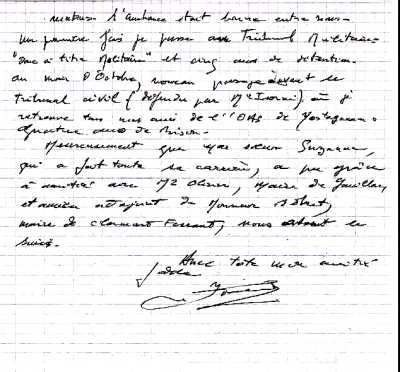 l'ambiance était bonne entre nous.
Une première fois je passe au Tribunal Militaire
"à titre Militaire" et cinq ans de détention.
au mois d'Octobre, nouveau passage devant le
Tribunal civil (défendu par Me Isorni) où je
retrouve tous nos amis de l'OAS de Mostaganem.
quatre ans de prison.
Heureusement que ma sœur Suzanne,
qui a fait toute sa carrière, a pu grâce
à amitié avec Mr Olivier, Maire de
et ancien adjoint de Monsieur
maire de Clermont Ferrand, nous
suivis.
Avec toute mon amitié